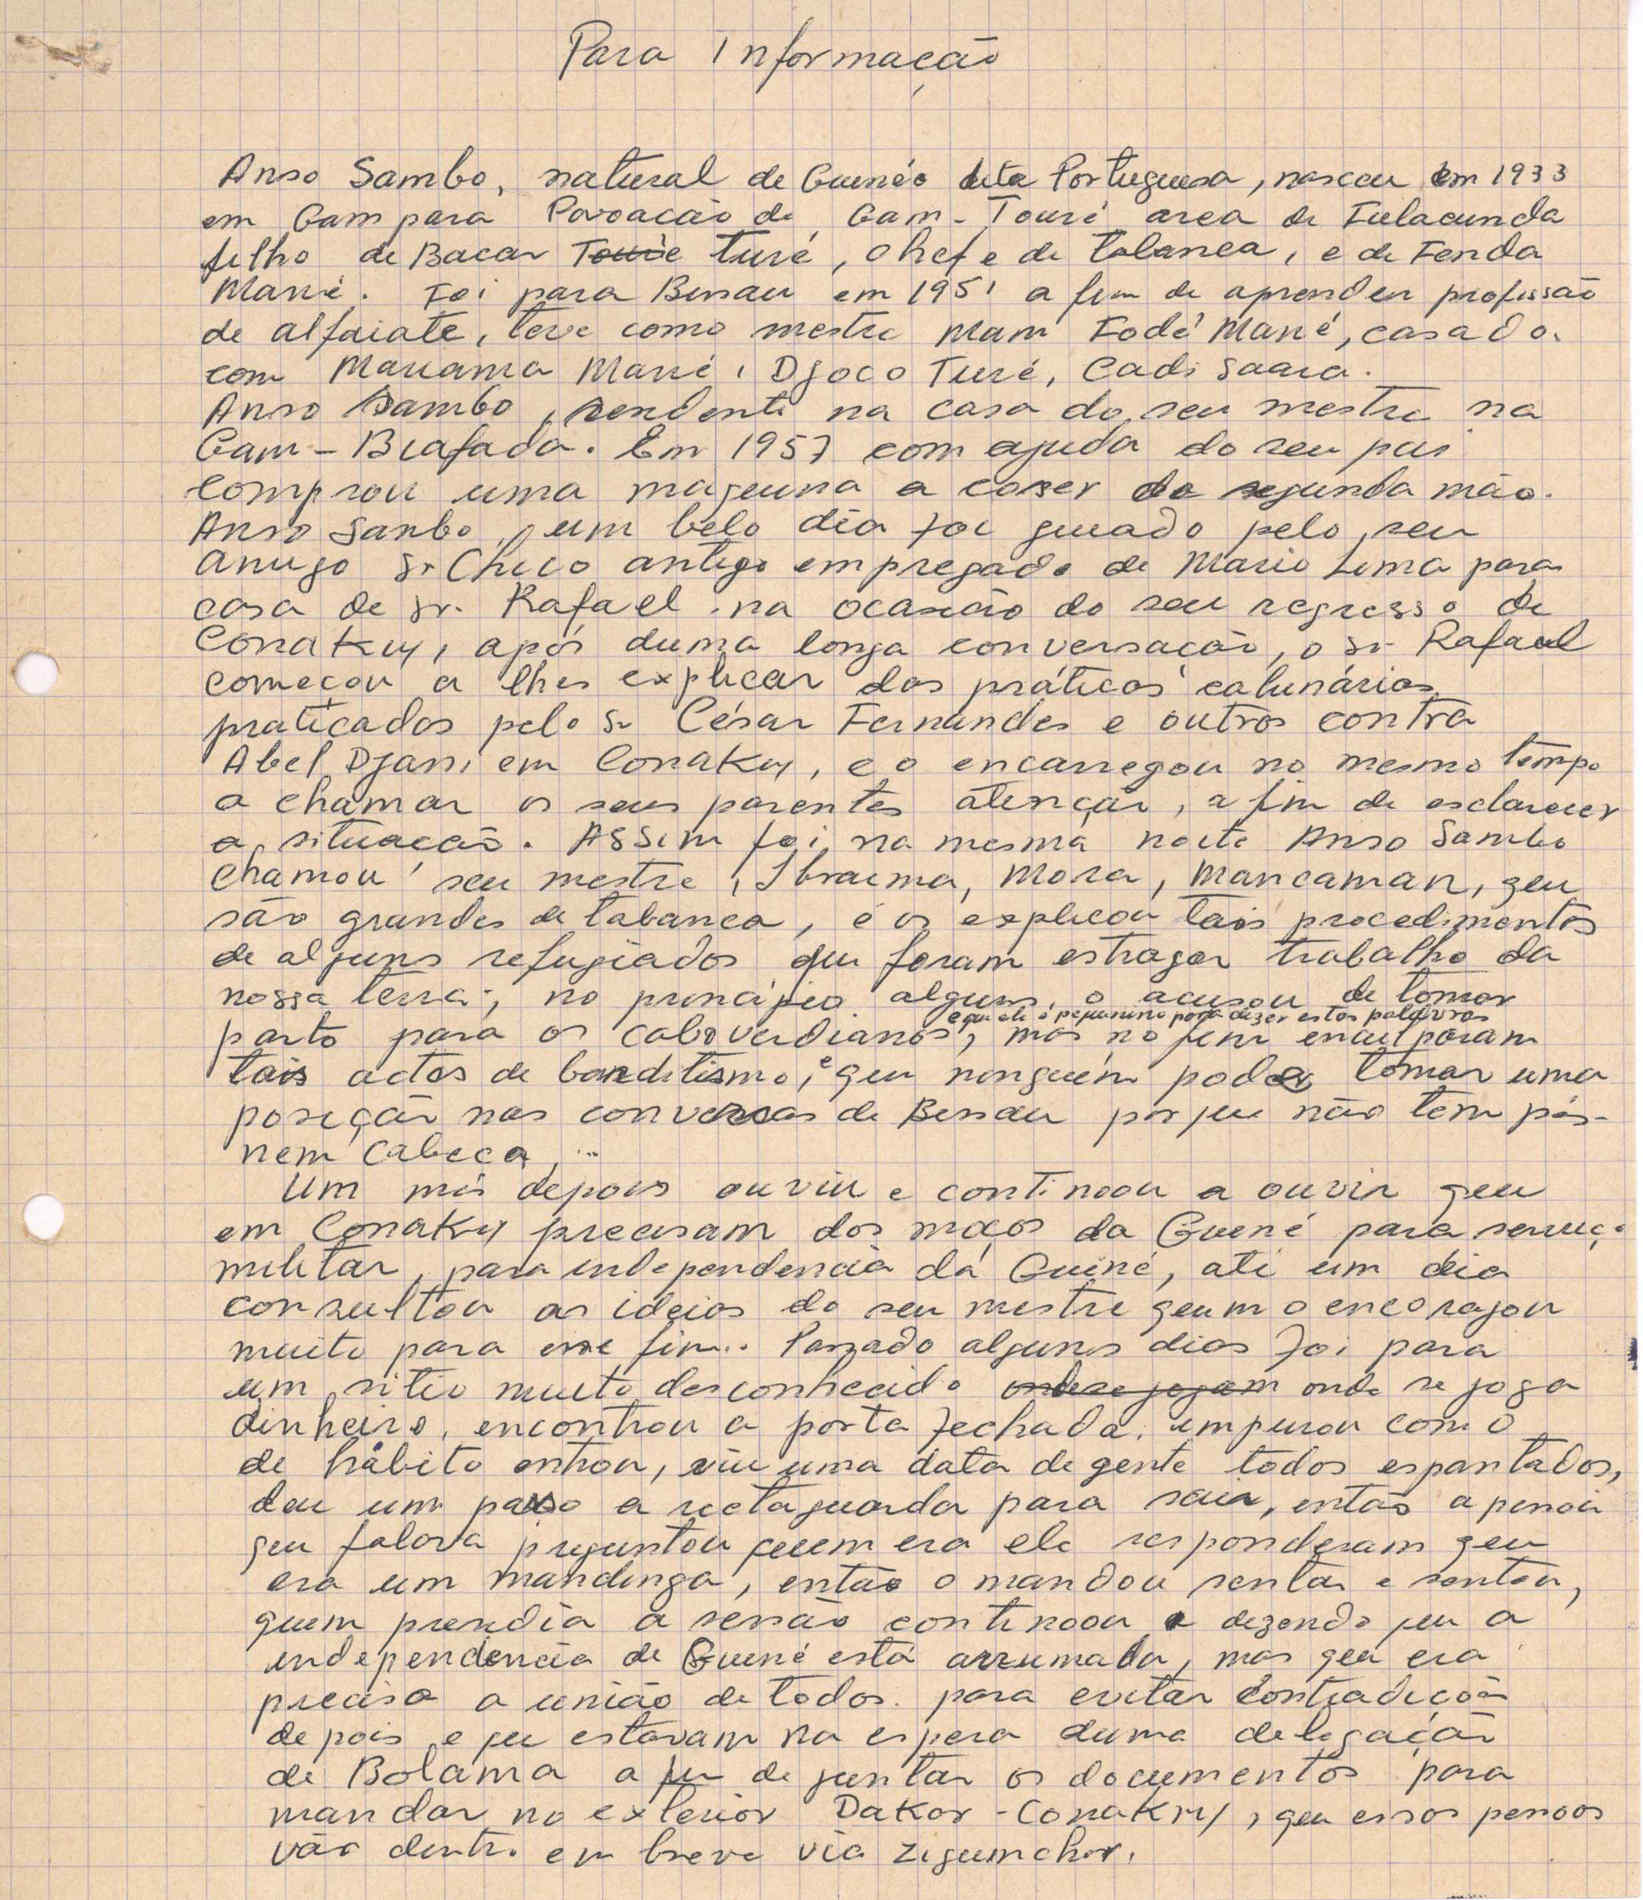 Para Informação
Anso Sambo, natural de Guinéo dita Portuguesa, nasceu em 1933
em Gam para Povoacão de Gam-Touré area de Fulacunda
filho de Bacar Touré Turé, chefe de tabanca, e de Fenda
Mané. Foi para Bissau em 1951 a fim de aprender profissão
de alfaiate, teve como mestre Mam Fodé Mané, casado
com Mariama Mané, Djoco Turé, Cadi Saara.
Anso Sambo, residente na casa do seu mestre na
Gam-Biafada. Em 1957 com ajuda do seu pai
comprou uma maquina a coser de segunda mão.
Anso Sanbo, um belo dia foi guiado pelo seu
amigo Sr Chico antigo empregado de Mario Lima para
casa de Sr. Rafael na ocasião do seu regresso de
Conakry, após duma longa conversação, o Sr Rafael
começou a lhes explicar das práticas calunárias
praticados pelo Sr César Fernandes e outros contra
Abel Djassi em Conakry, e o encarregou no mesmo tempo
a chamar os seus parentes atenção, a fim de esclarecer
a situação. Assim foi, na mesma noite Anso Sambo
chamou seu mestre, Ibraima, Mora, Mancaman, que
são grandes de tabanca, e os explicou tais procedimentos
de alguns refugiados que foram estragar trabalho da
nossa terra; no principio alguns, o acusou de tomar
e que ele é pequenino para dizer estas palavras
parto para os caboverdianos, mas no fim enculparam
tais actos de banditismo, e que ninguém pode tomar uma
posição nas conversas de Bissau porque não tem pés
nem cabeca...
Um mês depois ouviu e continoou a ouvir que
em Conakry precisam dos moços da Guiné para serviço
militar, para independencia da Guiné, até um dia
consultou as ideias do seu mestre quem o encorajou
muito para esse fim.. Passado alguns dias foi para
um sitio muito desconhecido onde se jogam onde se joga
dinheiro, encontrou a porta fechada, impurou como
de hábito entrou, viu uma data de gente todos espantados,
deu um passo a rectaguarda para sair, então a pessoa
que falava preguntou quem era ele responderam que
era um mandinga, então o mandou sentar e sentou,
quem presidia a sessão continoou dizendo que a
independencia de Guiné está arrumada, mas que era
preciso a união de todos para evitar contradição
depois e que estavam na espera duma delegação
de Bolama a fim de juntar os documentos para
mandar no exterior Dakar-Conakry, que essas pessoas
vão dentro em breve via Ziguinchor.